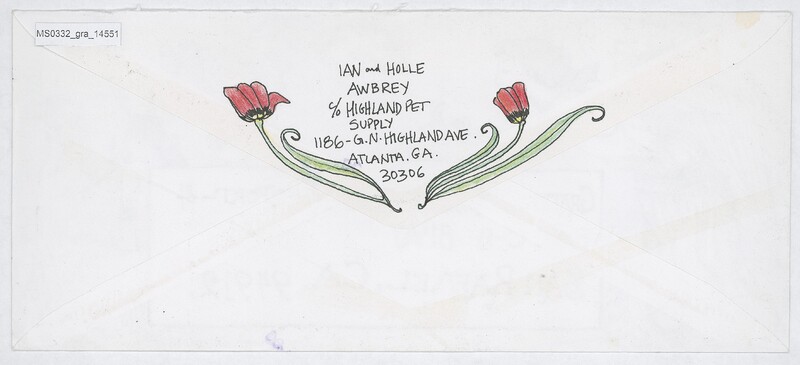 MS0332_gra_14551
IAN and HOLLE
AWBREY
c/o HIGHLAND PET
SUPPLY
1186-G.N. HIGHLAND AVE.
ATLANTA. GA.
30306